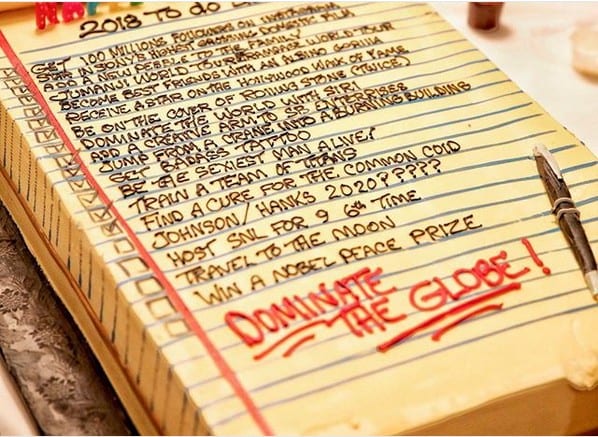 2018 TO DO
GET 100 MILLION FOLLOWERS ON INSTAGRAM
STAR IN SONY'S HIGHEST GROSSING DOMESTIC FILM
A NEW TO THE FAMILY
JUMANJI WORLD TOUR/RAMPAGE WORLD TOUR
BECOME BEST FRIENDS WITH AN ALBINO GORILLA
RECEIVE A STAR ON THE HOLLYWOOD WALK OF FAME
BE ON THE COVER OF ROLLING STONE (TWICE)
DOMINATE THE WORLD WITH SIRI
ADD A CREATIVE ARM TO ENTERPRISES
JUMP FROM A CRANE INTO A BURNING BUILDING
GET BADASS TATTOO
BE THE SEXIEST MAN ALIVE!
TRAIN A TEAM OF TITANS
FIND A CURE FOR THE COMMON COLD
JOHNSON/HANKS 2020????
HOST SNL FOR 9 6th TIME
TRAVEL TO THE MOON
WIN A NOBEL PEACE PRIZE
DOMINATE
THE GLOBE!